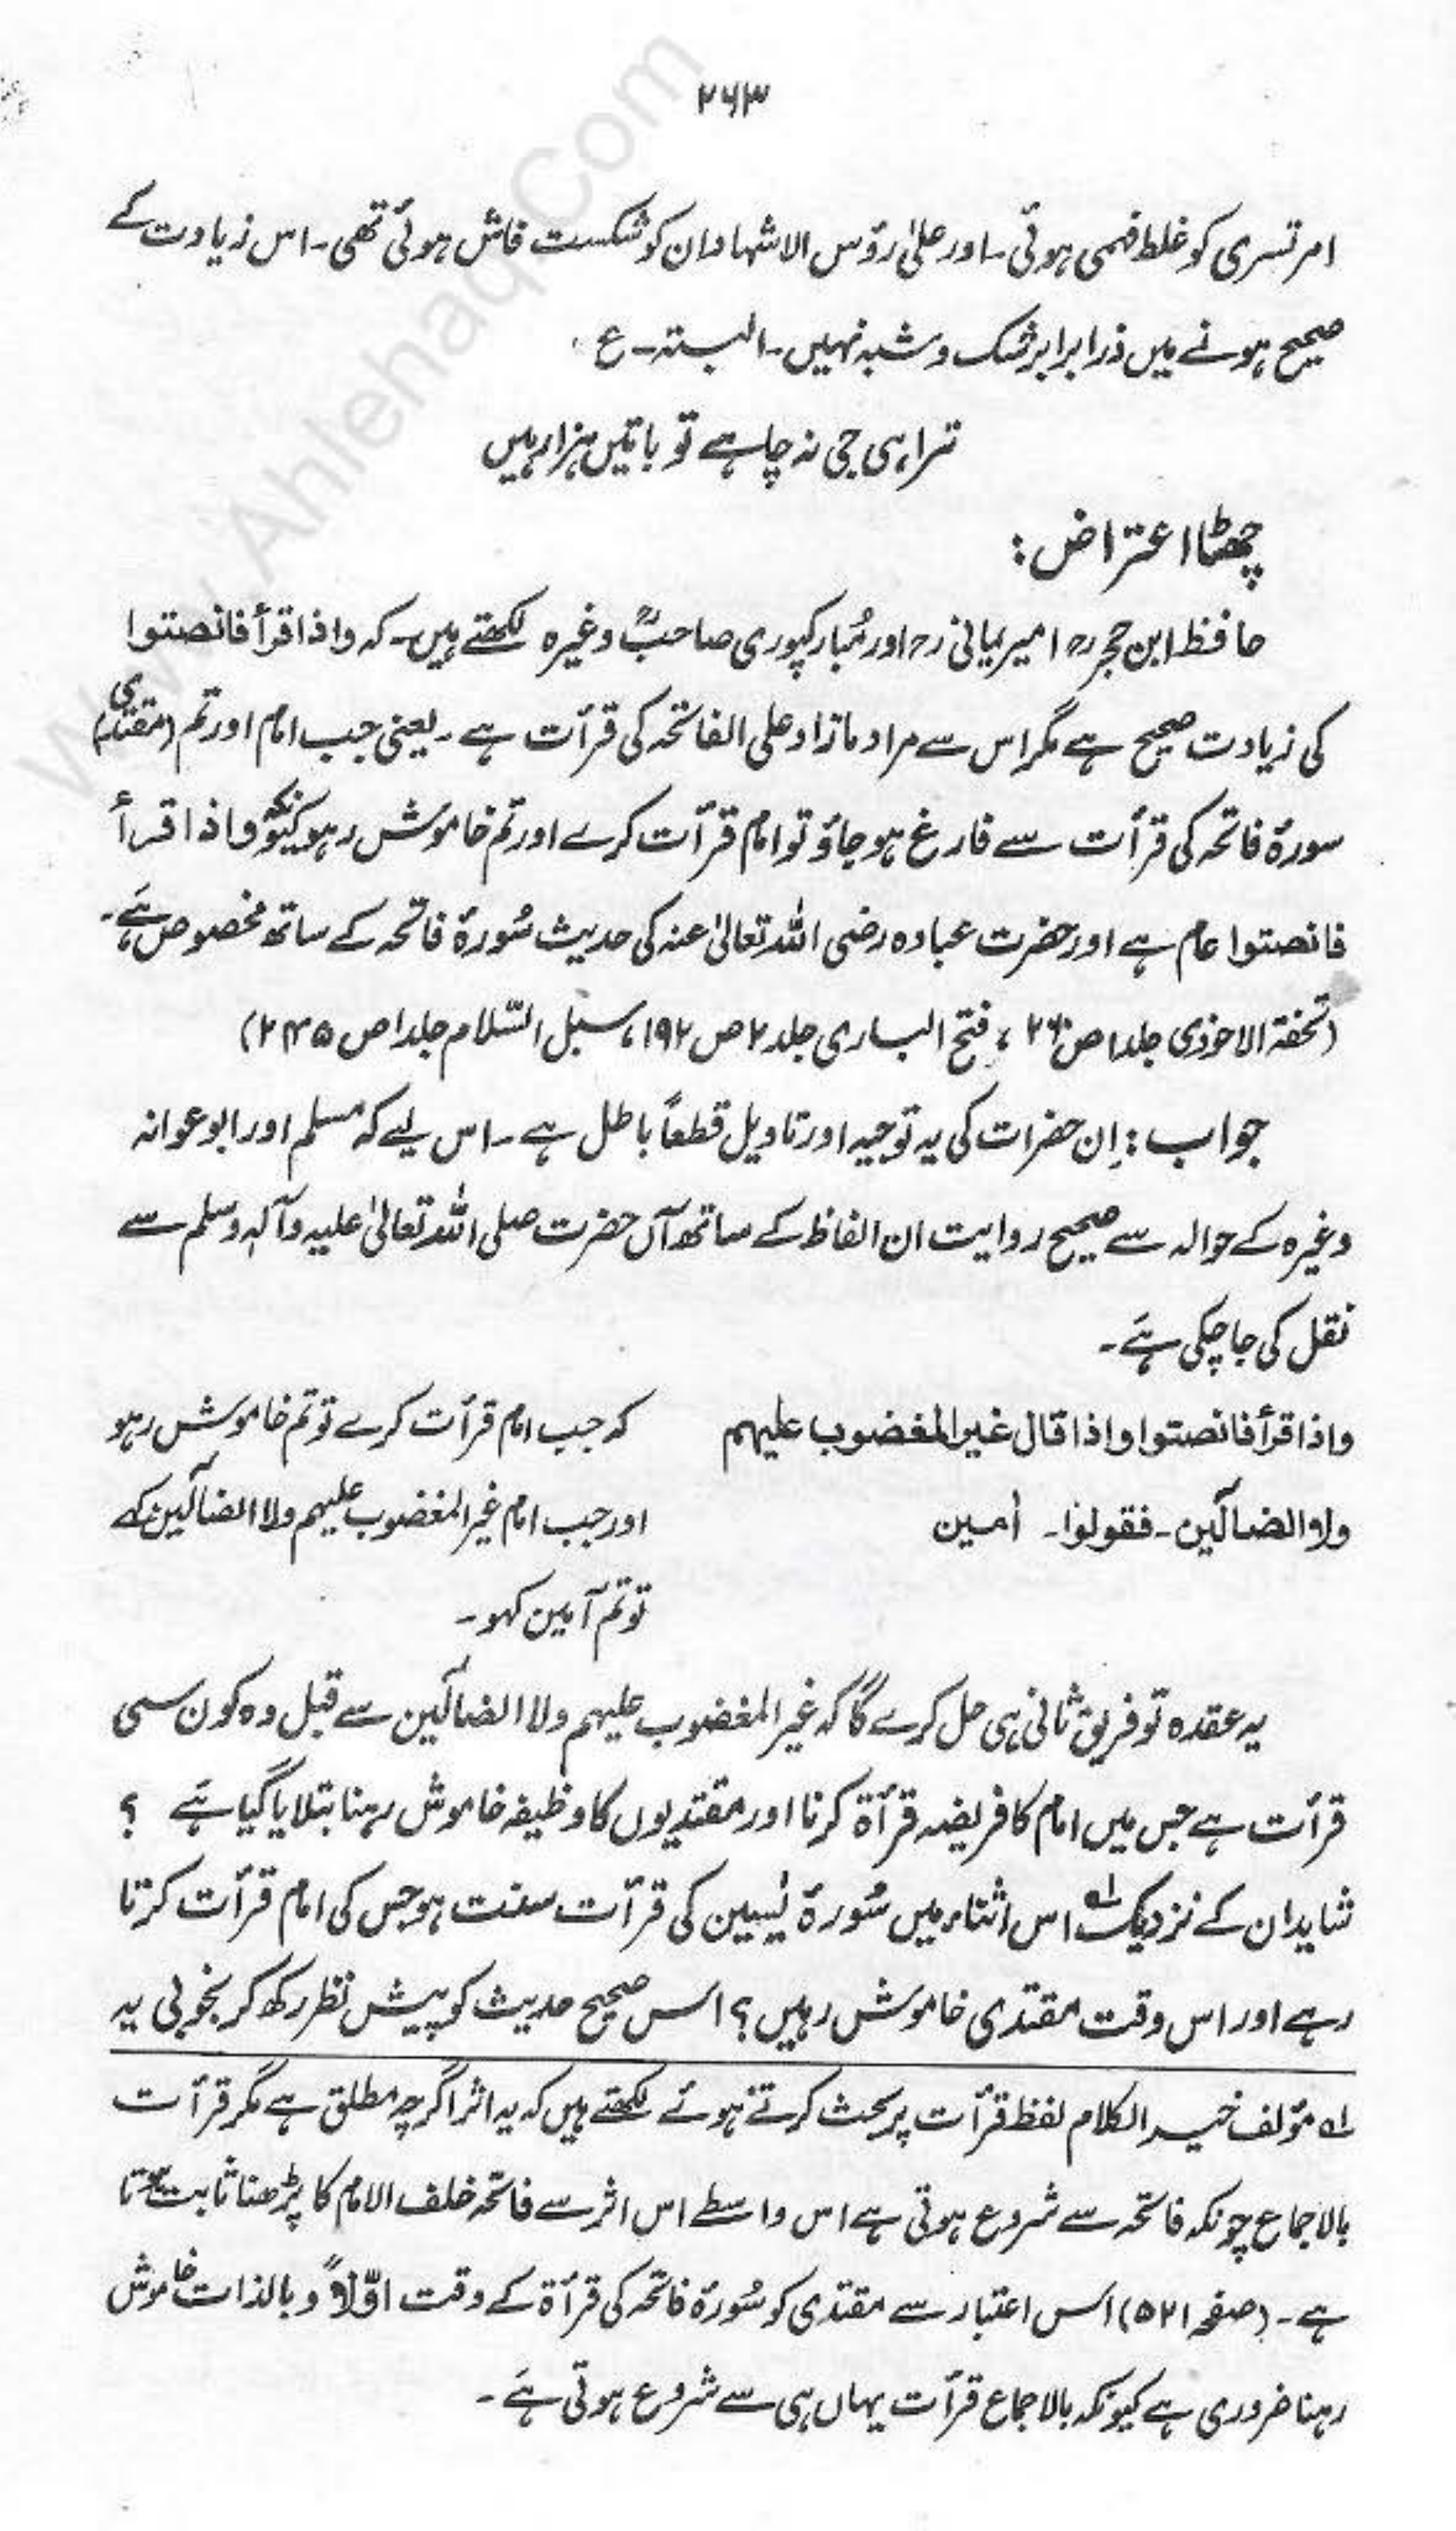 ۲۶۳
امرتسری کو غلط فہمی ہوئی۔ اور علیٰ رؤس الاشہاد ان کو شکست فاش ہوئی تھی۔ اس زیادت کے
صحیح ہونے میں ذرا برابر شک و شبہ نہیں۔ البتہ۔ ع
ترا ہی جی نہ چاہے تو باتیں ہزار ہیں
چھٹا اعتراض:
حافظ ابن حجر رح امیر یمانی رح اور مُبارکپوری صاحبؒ وغیرہ لکھتے ہیں۔ کہ واذا قرأ فانصتوا
کی زیادت صحیح ہے مگر اس سے مراد مازاد علی الفاتحہ کی قرأت ہے۔ یعنی جب امام اور تم (مقتدی)
سورۂ فاتحہ کی قرأت سے فارغ ہو جاؤ تو امام قرأت کرے اور تم خاموش رہو کیونکہ واذا قرأ
فانصتوا عام ہے اور حضرت عبادہ رضی اللہ تعالیٰ عنہ کی حدیث سُورۂ فاتحہ کے ساتھ مخصوص ہَے۔
(تحفۃ الاحوذی جلد ا ص ، فتح الباری جلد ۲ ص ۱۹۲، سبل السّلام جلد ا ص ۲۴۵)
جواب: اِن حضرات کی یہ توجیہ اور تاویل قطعاً باطل ہے۔ اس لیے کہ مسلم اور ابو عوانہ
وغیرہ کے حوالہ سے صحیح روایت ان الفاظ کے ساتھ آں حضرت صلی اللہ تعالیٰ علیہ وآلہٖ وسلم سے
نقل کی جا چکی ہَے۔
واذا قرأ فانصتوا واذا قال غیر المغضوب علیہم
ولا الضآلّین۔ فقولوا۔ اٰمین
کہ جب امام قرأت کرے تو تم خاموش رہو
اور جب امام غیر المغضوب علیہم ولا الضآلّین کہے
تو تم آمین کہو۔
یہ عقدہ تو فریق ثانی ہی حل کرے گا کہ غیر المغضوب علیہم ولا الضآلّین سے قبل وہ کون سی
قرأت ہے جس میں امام کا فریضہ قرأۃ کرنا اور مقتدیوں کا وظیفہ خاموش رہنا بتلایا گیا ہَے ؟
شاید ان کے نزدیک لہ اس اثناء میں سُورۂ یٰسین کی قرأت سنت ہو جس کی امام قرأت کرتا
رہے اور اس وقت مقتدی خاموش رہیں؟ اس صحیح حدیث کو پیش نظر رکھ کر بخوبی یہ
لہ مؤلف خیر الکلام لفظ قرأت پر بحث کرتے ہوئے لکھتے ہیں کہ یہ اثر اگرچہ مطلق ہے مگر قرأت
بالاجماع چونکہ فاتحہ سے شروع ہوتی ہے اس واسطے اس اثر سے فاتحہ خلف الامام کا پڑھنا ثابت ہوتا
ہے۔ (صفحہ ۵۲۱) اس اعتبار سے مقتدی کو سُورۂ فاتحہ کی قرأۃ کے وقت اوّلاً و بالذات خاموش
رہنا ضروری ہے کیونکہ بالاجماع قرأت یہاں ہی سے شروع ہوتی ہَے۔
www.Ahlehaq.Com